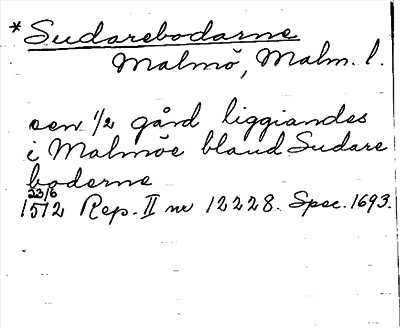 *Sudarebodarne
Malmö, Malm. l.
een 1/2 gård liggiandes
i Malmöe bland Sudare
boderne
23/6
1512 Rep. II nr 12228. Spec. 1693.